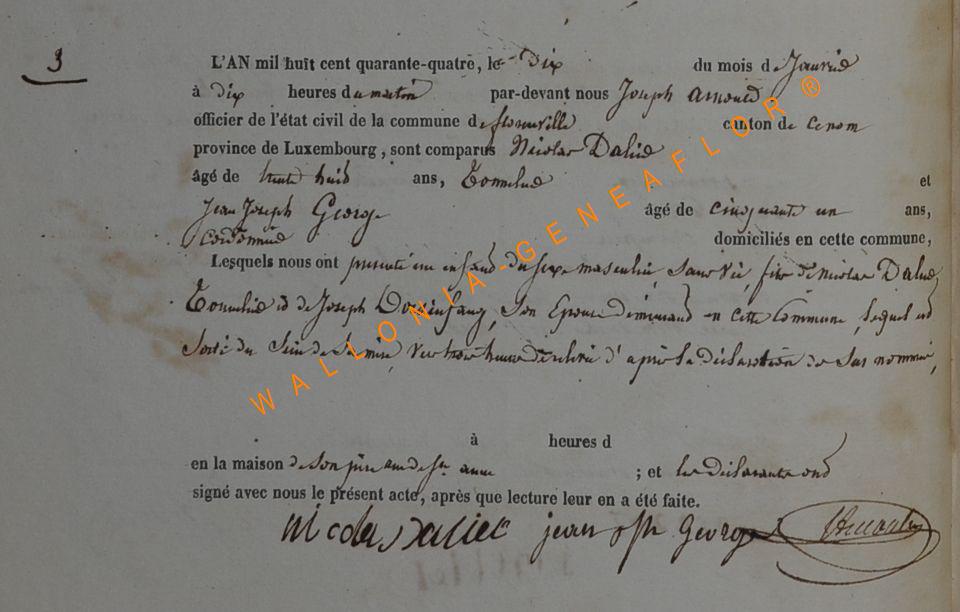 3
L'AN mil huit cent quarante-quatre, le dix du mois de Janvier
à dix heures du matin par-devant nous Joseph Arnould
officier de l'état civil de la commune de florenville canton de
province de Luxembourg, sont comparus Nicolas Daliée
âgé de trente huit ans, Tonnelier et
Jean Joseph George âgé de cinquante un ans,
Cordonnier domiciliés en cette commune,
Lesquels nous ont présenté un enfant du sexe masculin, sans vie, fils de Nicolas
Tonnelier et de Joseph son Epouse demeurant en cette Commune, lequel est
Sorti du Sein de Sa mère, vers trois heures d' après la déclaration de Sus nommé,
à heures d
en la maison de Son père rue de Ste anne ; et les déclarants ont
signé avec nous le présent acte, après que lecture leur en a été faite.
nicolas jean jsph George Arnould
WALLONIA-GENEAFLOR®